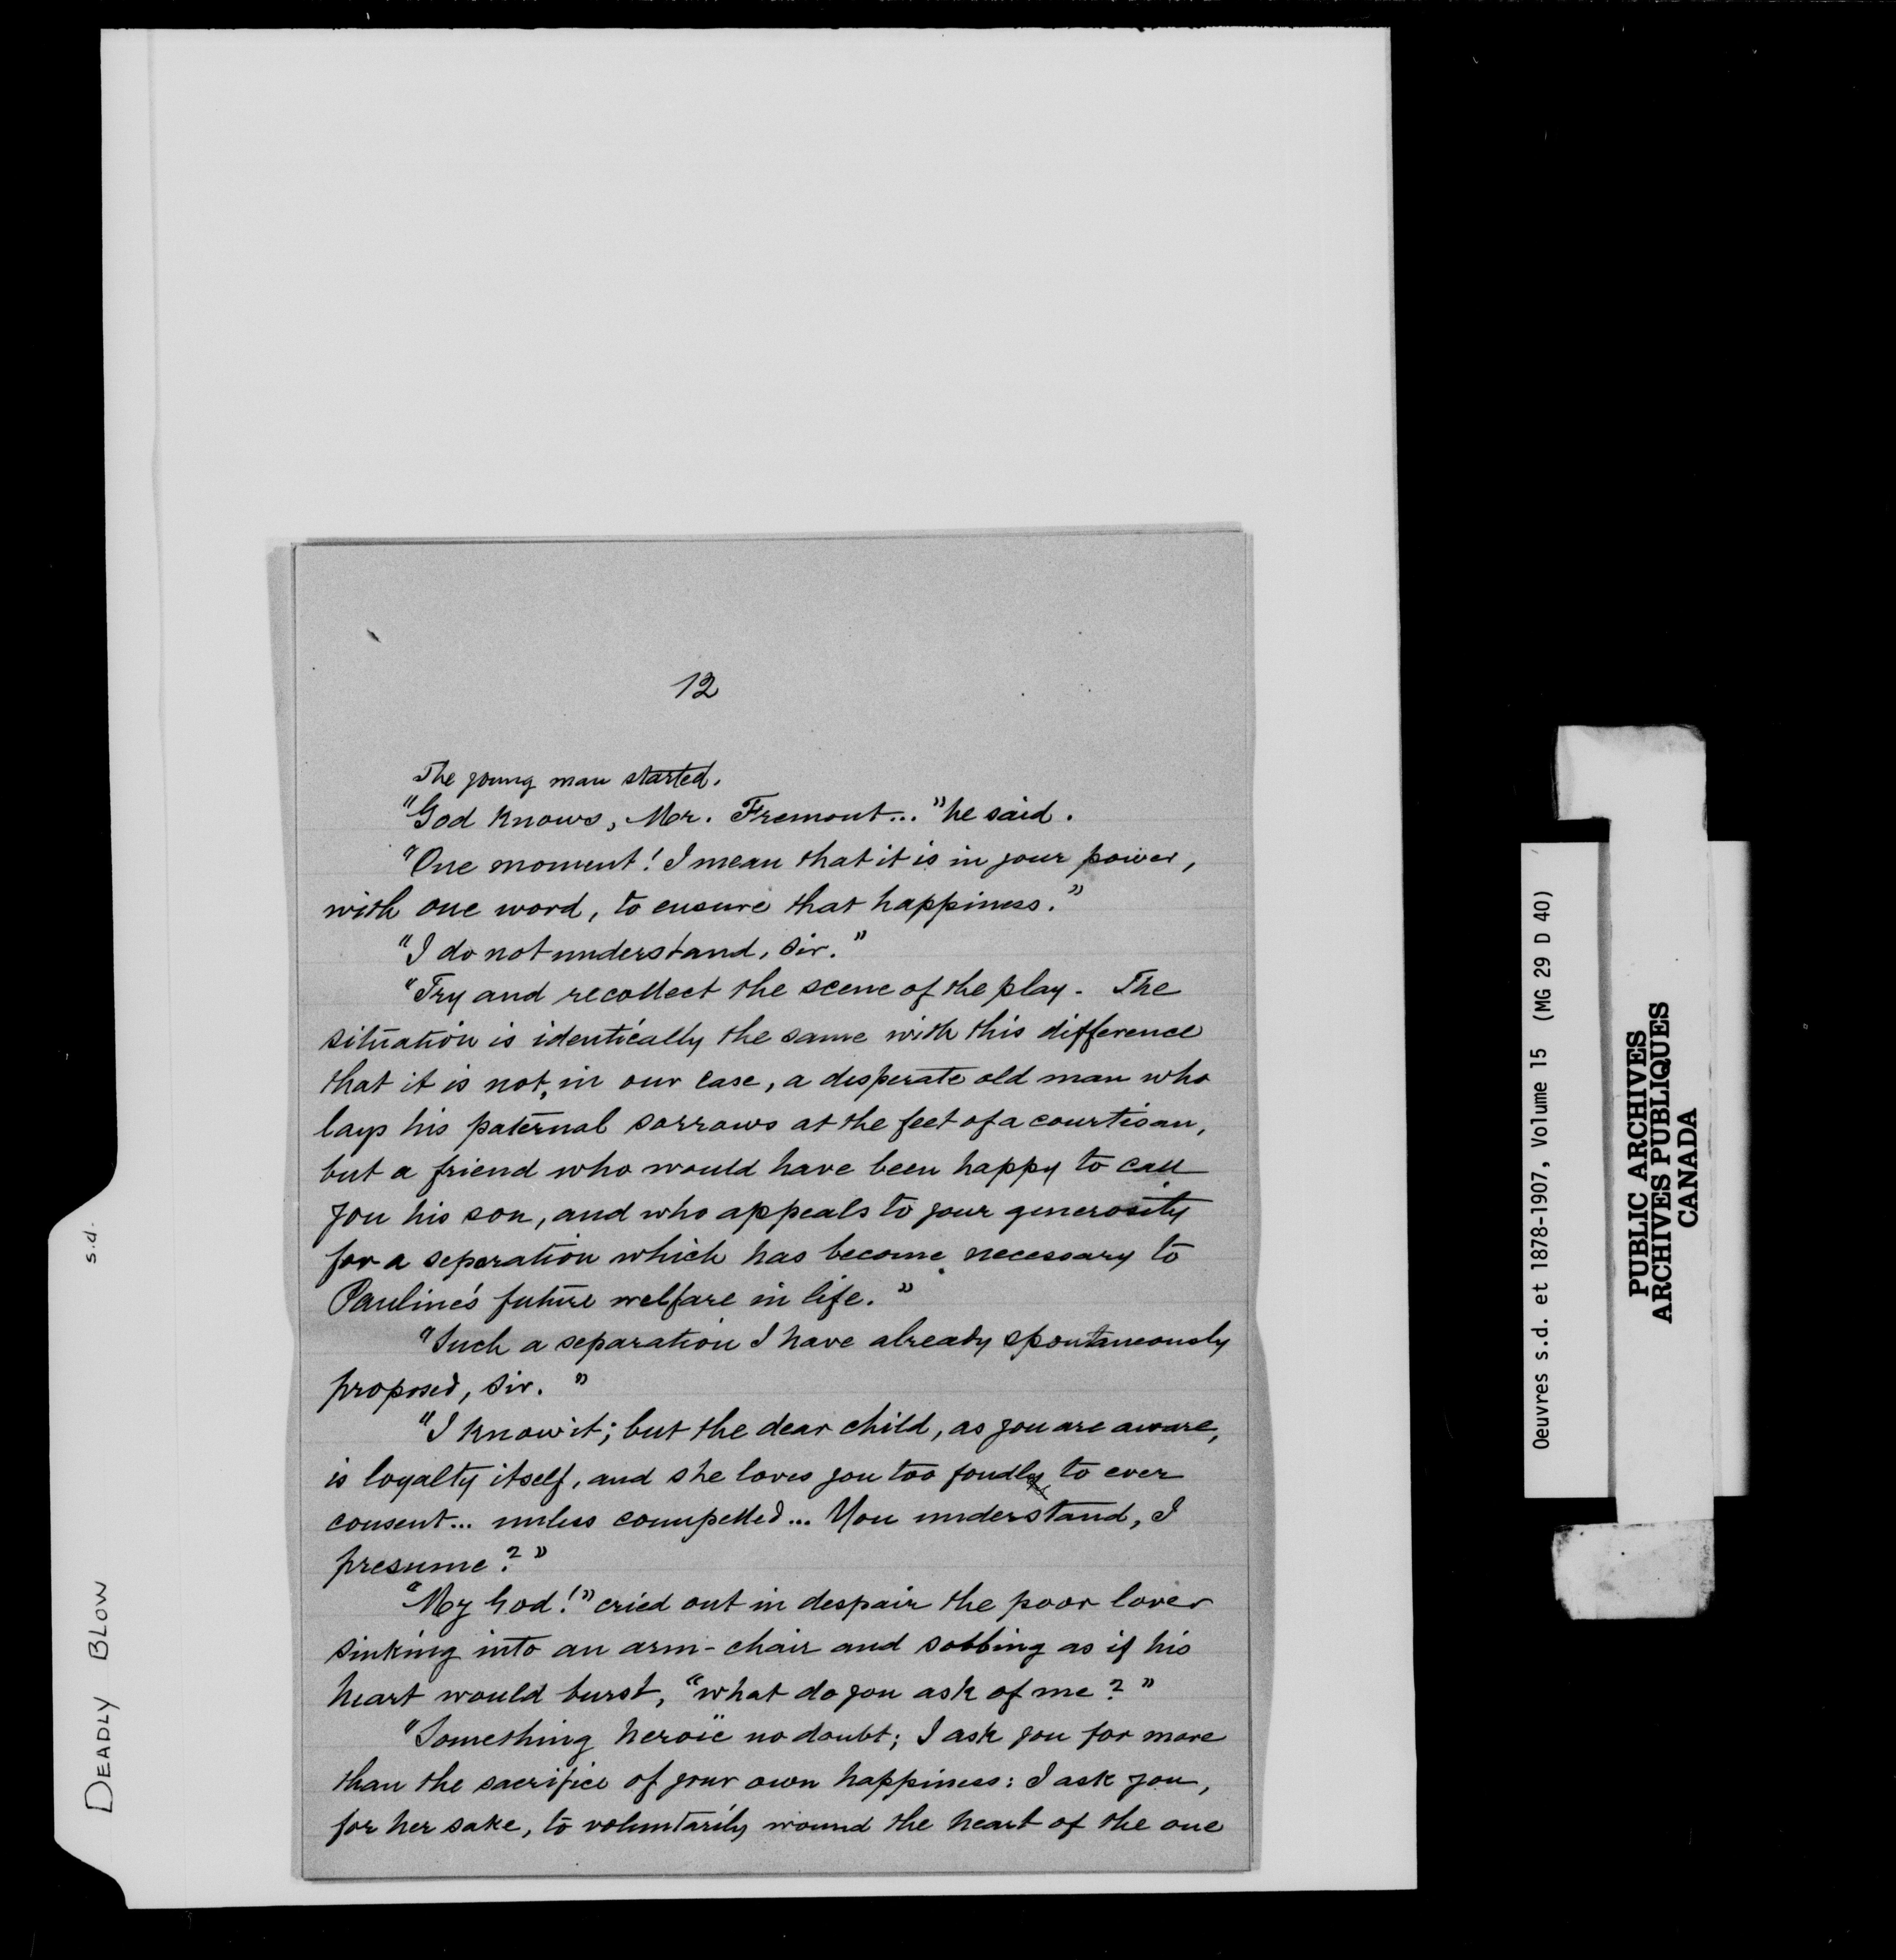 12
The young man started.
"God knows, Mr. Fremont..." he said.
"One moment! I mean that it is in your power,
with one word, to ensure that happiness."
"I do not understand, Sir."
"Try and recollect the scene of the play. The
situation is identically the same with this difference
that it is not, in our case, a desperate old man who
lays his paternal sorrows at the feet of a courtisan,
but a friend who would have been happy to call
you his son, and who appeals to your generosity
for a separation which has become necessary to
Pauline's future welfare in life."
"Such a separation I have already spontaneously
proposed, Sir."
"I know it; but the dear child, as you are aware,
is loyalty itself, and she loves you too fondly to ever
consent... unless compelled... You understand, I
presume?"
"My God!" cried out in despair the poor lover
sinking into an arm-chair and sobbing as if his
heart would burst, "what do you ask of me?"
"Something heroïc no doubt; I ask you for more
than the sacrifice of your own happiness: I ask you,
for her sake, to voluntarily wound the heart of the one
DEADLY BLOW s.d.
Oeuvres s.d. et 1878-1907, Volume 15 (MG 29 D 40)
PUBLIC ARCHIVES
ARCHIVES PUBLIQUES
CANADA